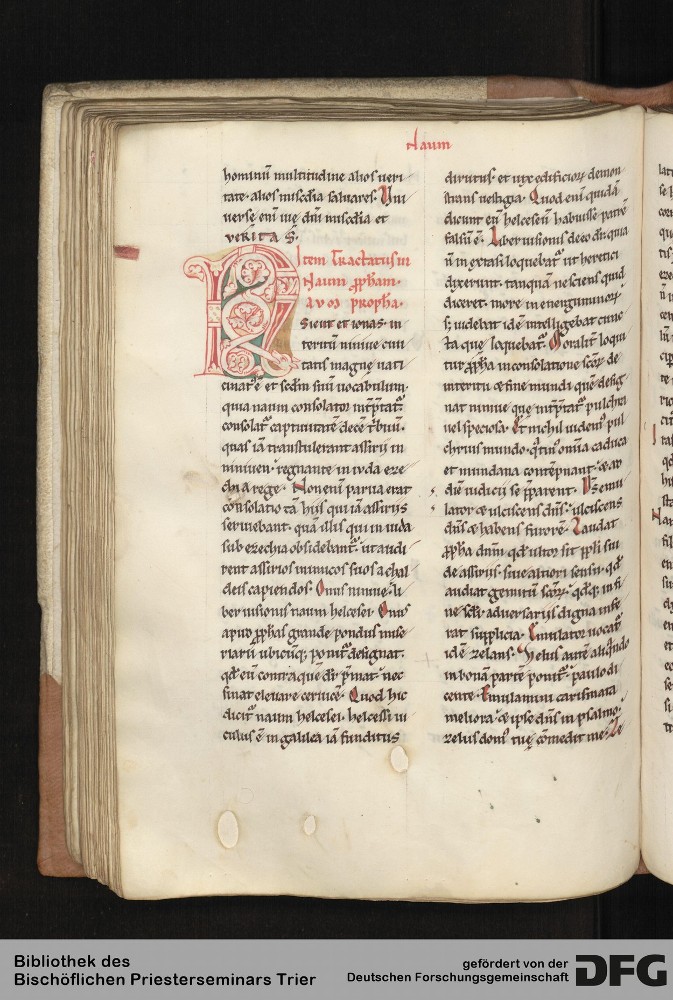 Naum
hominū multitudine alios veri
tate· alios misc̄dia saluares· Vni
uerse enī uię dn̄i misc̄dia et
VERITAS·
Item Tractatus in
Naum ꝓph̄am·
Naum propha·
Sicut et ionas· in
teritū niniue ciui
tatis magnę nati
cinatᷣ· et scd̄m sui uocabulum·
quia naum consolator int̄p̄tatᷣ
consolatᷣ captiuitatē decē t̓buū·
quas iā transtulerant assirii in
niniuen· regnante in iuda eze
chia rege· Non enī parua erat
consolatio tā hiis qui iā assiriis
seruiebant· quā illis qui in iuda
sub ezechia obsidebantᷣ· ut audi
rent assirios inimicos suos a chal
deis capiendos· Onus niniue· li
ber uisionis naum helcesei· Onus
apud ꝓph̄as grande pondus mise
riarū ubicūq; ponitᷣ designat·
qd̄ eū contra quē dr̄ p̄mat· nec
sinat eleuare ceruicē· Quod hic
dicitᷣ naum helcesei· helcessi ui
culus ē in galilea iā funditus
dirutus· et uix edificioꝝ demon
strans uestigia· Quod enī quidā
dicunt eū helceseū habuisse patrē
falsū ē· Liber uisionis ideo dr̄· quia
ñ in extasi loquebatᷣ ut heretici
dixerunt· tanquā nesciens quid
diceret· more in energuminoꝝ
s; uidebat idē intelligebat cunc
ta que loquebatᷣ· Moralitᷣ loqui
tur ꝓph̄a in consolatione sc̄oꝝ de
interitu & fine mundi quē desig
nat niniue que int̄p̄tatᷣ pulchra
uel speciosa· Et nichil uidemᷣ pul
chrius mundo· qᷣtinᷣ omīa caduca
et mundana contēpnant· & ad
diē iudicii se p̄parent· Ds̄ emu
lator & ulciscens dn̄s· ulciscens
dn̄s & habens furorē· Laudat
ꝓph̄a dn̄m qd̄ ultor sit ppl̄i sui
de assiriis· siue altiori sensu· qd̄
audiat gemitū sc̄oꝝ· qd̄q; in fi
ne sc̄li aduersariis digna infe
rat supplicia· Emulator uocatᷣ
idē zelans· Zelus autē aliqn̄do
in bonā partē ponitᷣ· paulo di
cente· Emulamini carismata
meliora· & ipse dn̄s in psalmo·
zelus domᷣ tuę comedit me· Ze
Bibliothek des
Bischöflichen Priesterseminars Trier
gefördert von der
Deutschen Forschungsgemeinschaft
DFG